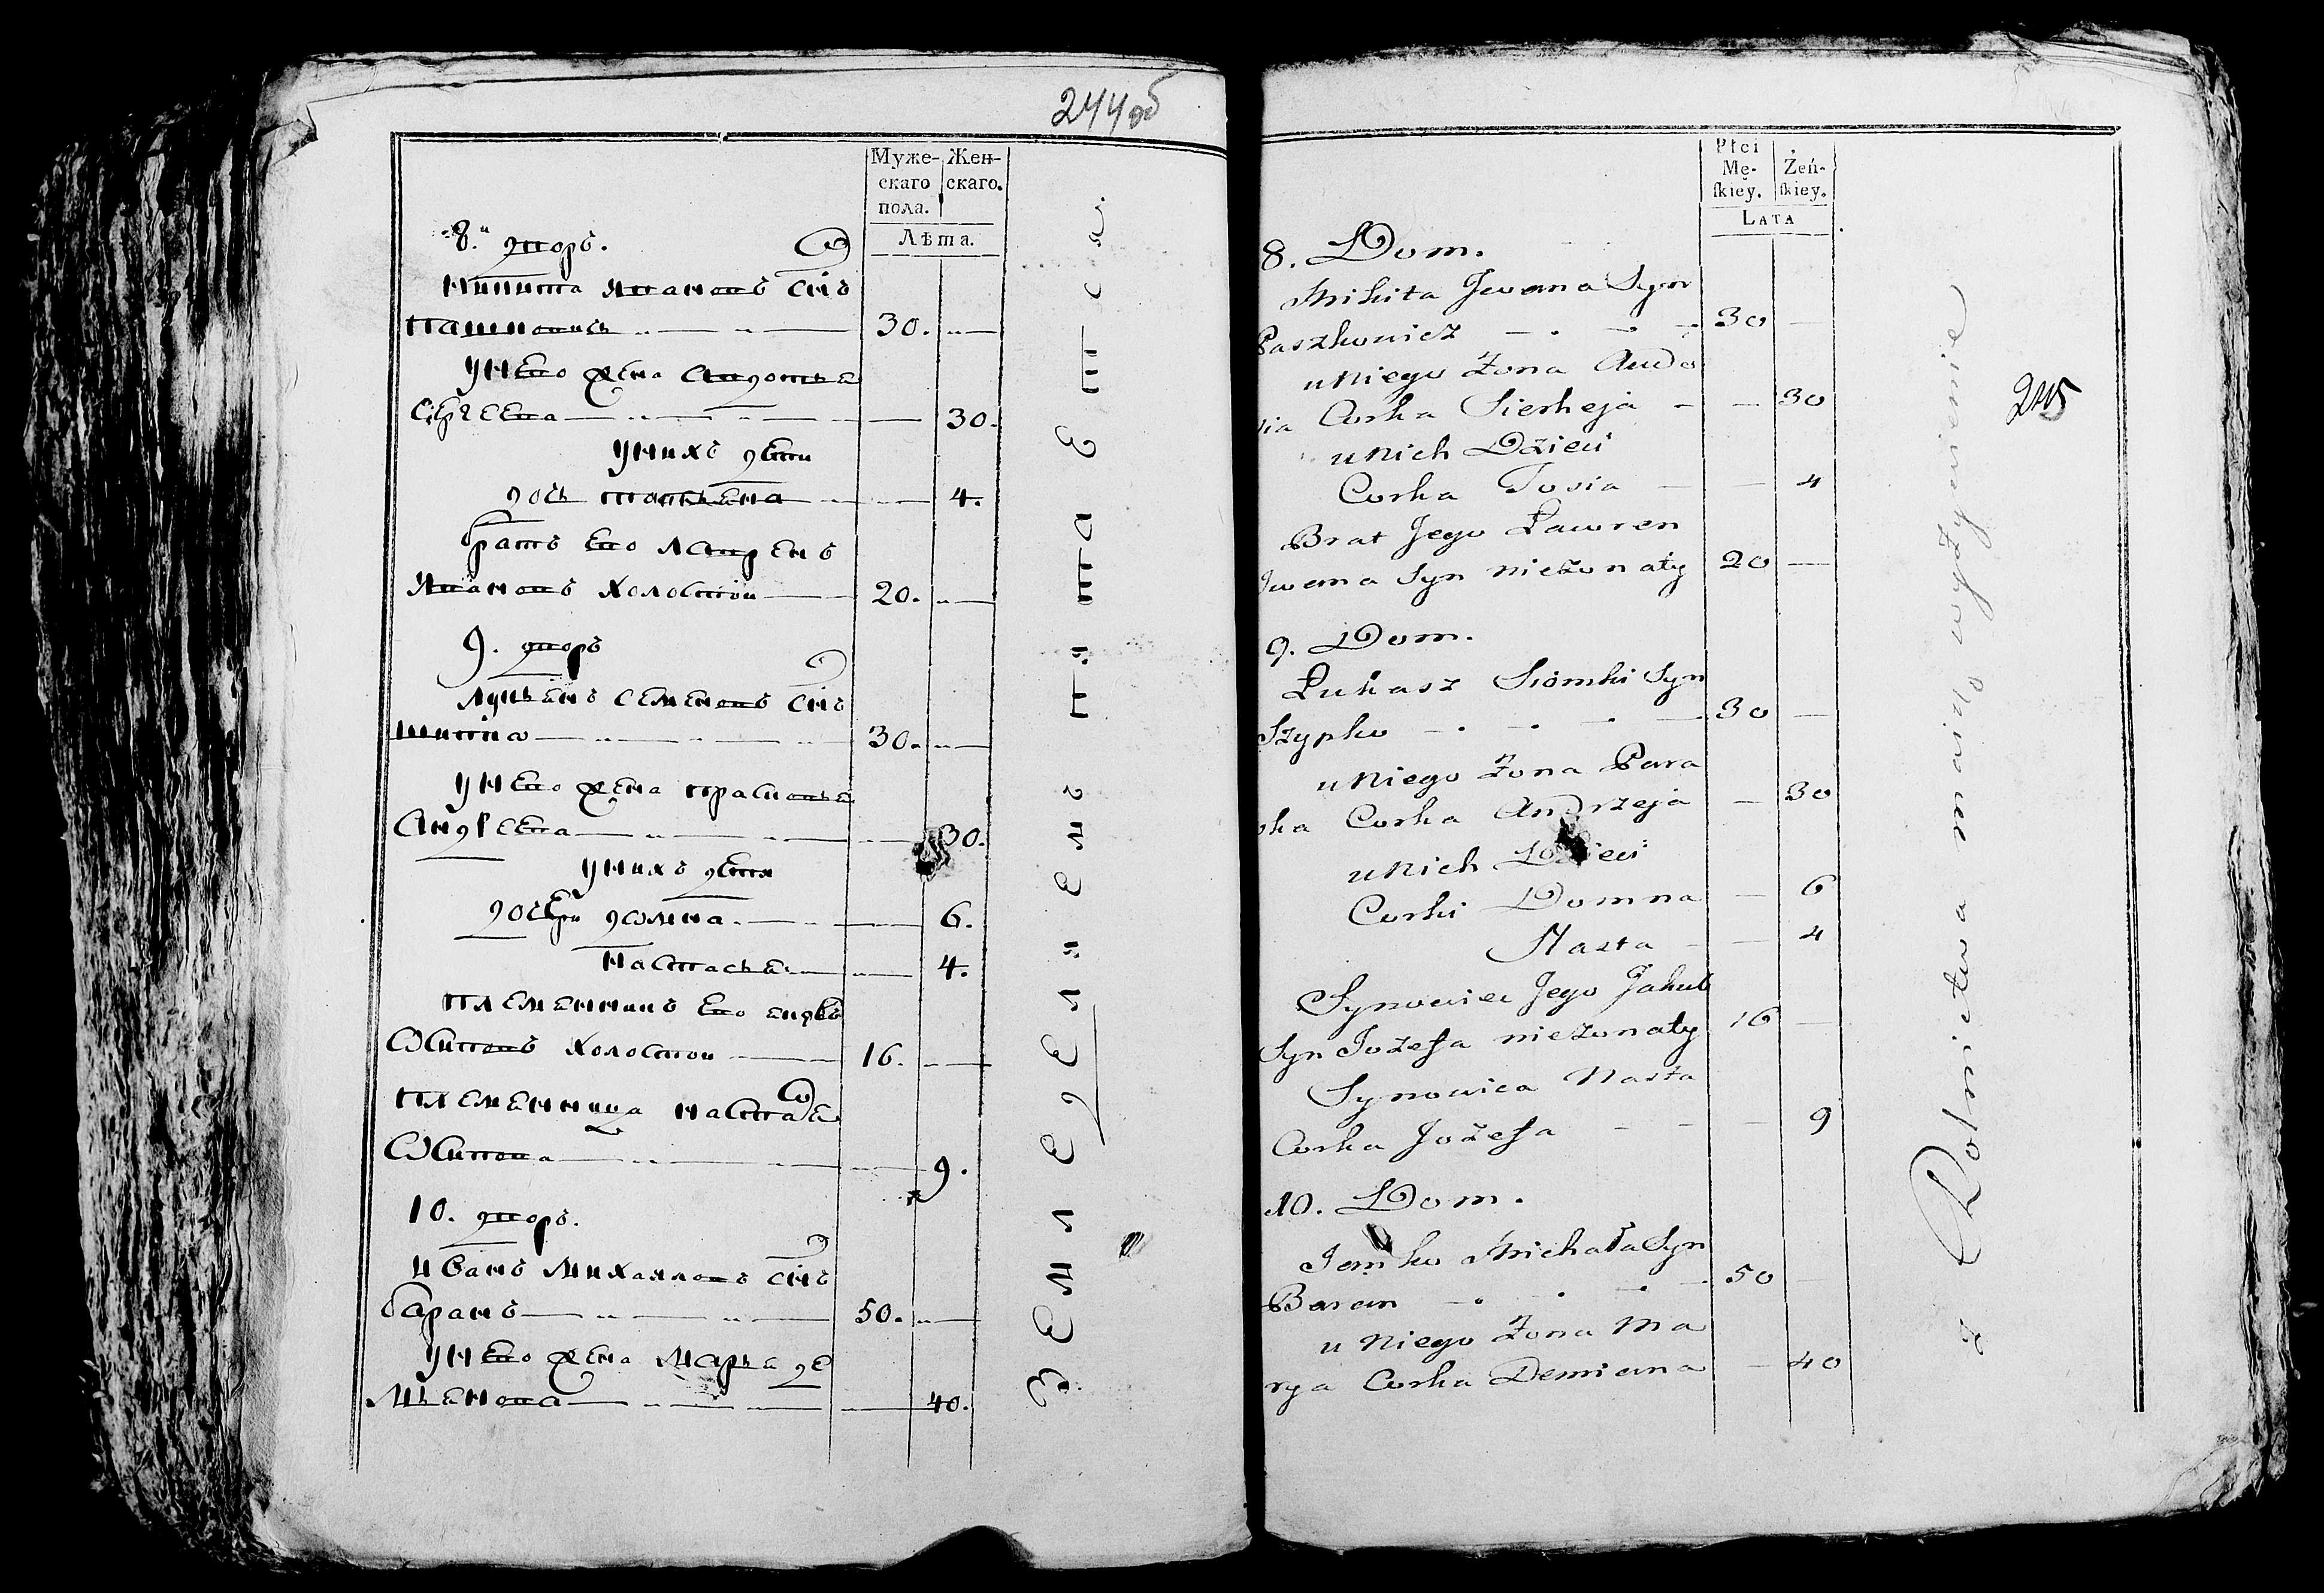 244об
Муже- Жен-
скаго скаго.
пола.
Лѣта.
8.й дворъ.
Никита Ивановъ Сынъ
Пашковичъ 30.
у него жена Авдотья
Сергеева 30.
у нихъ дети
дочь Татьяна 4.
братъ его Лавренъ
Ивановъ холостой 20.
9. дворъ
Лукьянъ Семеновъ Сынъ
Шипка 30.
у него жена Прасковья
Андреева 30.
у нихъ дети
дочери Домна 6.
Настасья 4.
племянникъ его
Осиповъ холостой 16.
племянница Настася
Осипова 9.
10. дворъ.
Иванъ Михайловъ Сынъ
Баранъ 50.
у него жена Марья Де
мьянова 40.
Земледелием питается.
Płci
Mę- Żeń-
ſkiey. ſkiey.
LATA
245
8. Dom.
Mikita Jwana Syn
Paszkowicz 30
u Niego Żona Audo
sia Corka Sierheja 30
u Nich Dzieci
Corka Tosia 4
Brat Jego Ławren
Jwana Syn nieżonaty 20
9. Dom.
Łukasz Siomki Syn
Szypko 30
u Niego Żona Para
ska Corka Andrzeja 30
u Nich Dzieci
Corki Domna 6
Nasta 4
Synowiec Jego Jakub
Syn Jozefa nieżonaty 16
Synowica Nasta
Corka Jozefa 9
10. Dom.
Michała Syn
Baran 50
u Niego Żona Ma
rya Corka Demiana 40
z Rolnictwa maią wyżywienie